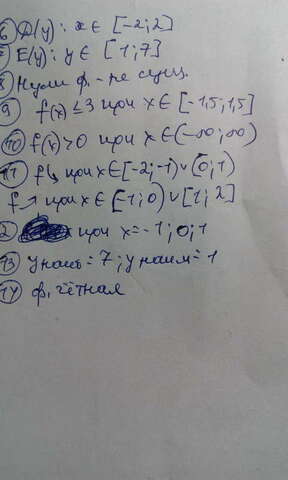 6 D(y): x ∈ [-2;2]
7 E(y): y ∈ [1;7]
8 Нули ф. - не сущ.
9 f(x) ≤ 3 при x ∈ [-1,5;1,5]
10 f(x) > 0 при x ∈ (-∞;∞)
11 f↘ при x ∈ [-2;-1) ∪ (0;1)
f↗ при x ∈ [-1;0) ∪ [1;2]
2 при x = -1; 0; 1
13 y наиб = 7; y наим = 1
14 ф. чётная